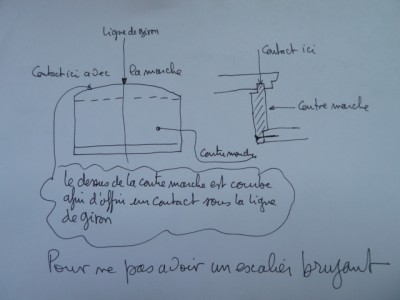 Ligne de Giron
Contact ici avec la marche
Contact ici
Contre marche
Contremarche
Le dessus de la contre marche est courbe
afin d'offrir un contact sous la ligne
de Giron
Pour ne pas avoir un escalier bruyant